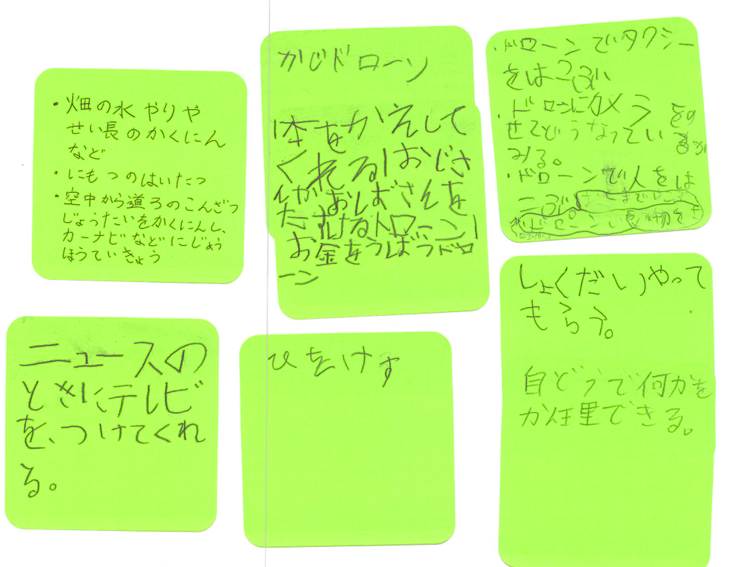 ・畑の水やりや
せい長のかくにん
など
・にもつのはいたつ
・空中から道ろのこんざつ
じょうたいをかくにんし、
カーナビなどにじょう
ほうていきょう
かじドローン
本をかえして
くれる おじさ
んか、おばさんを
たすけるドローン
お金をうばうドロ
ーン
・ドローンでタクシー
をはこぶ
・ドローンにカメラ
をの
せてどうなってい
るか
みる。
・ドローンで人をは
こぶ。
ニュースの
ときにテレビ
を、つけてくれ
る。
ひをけす
しゅくだいやって
もらう。
自どうで何かを
かん理できる。